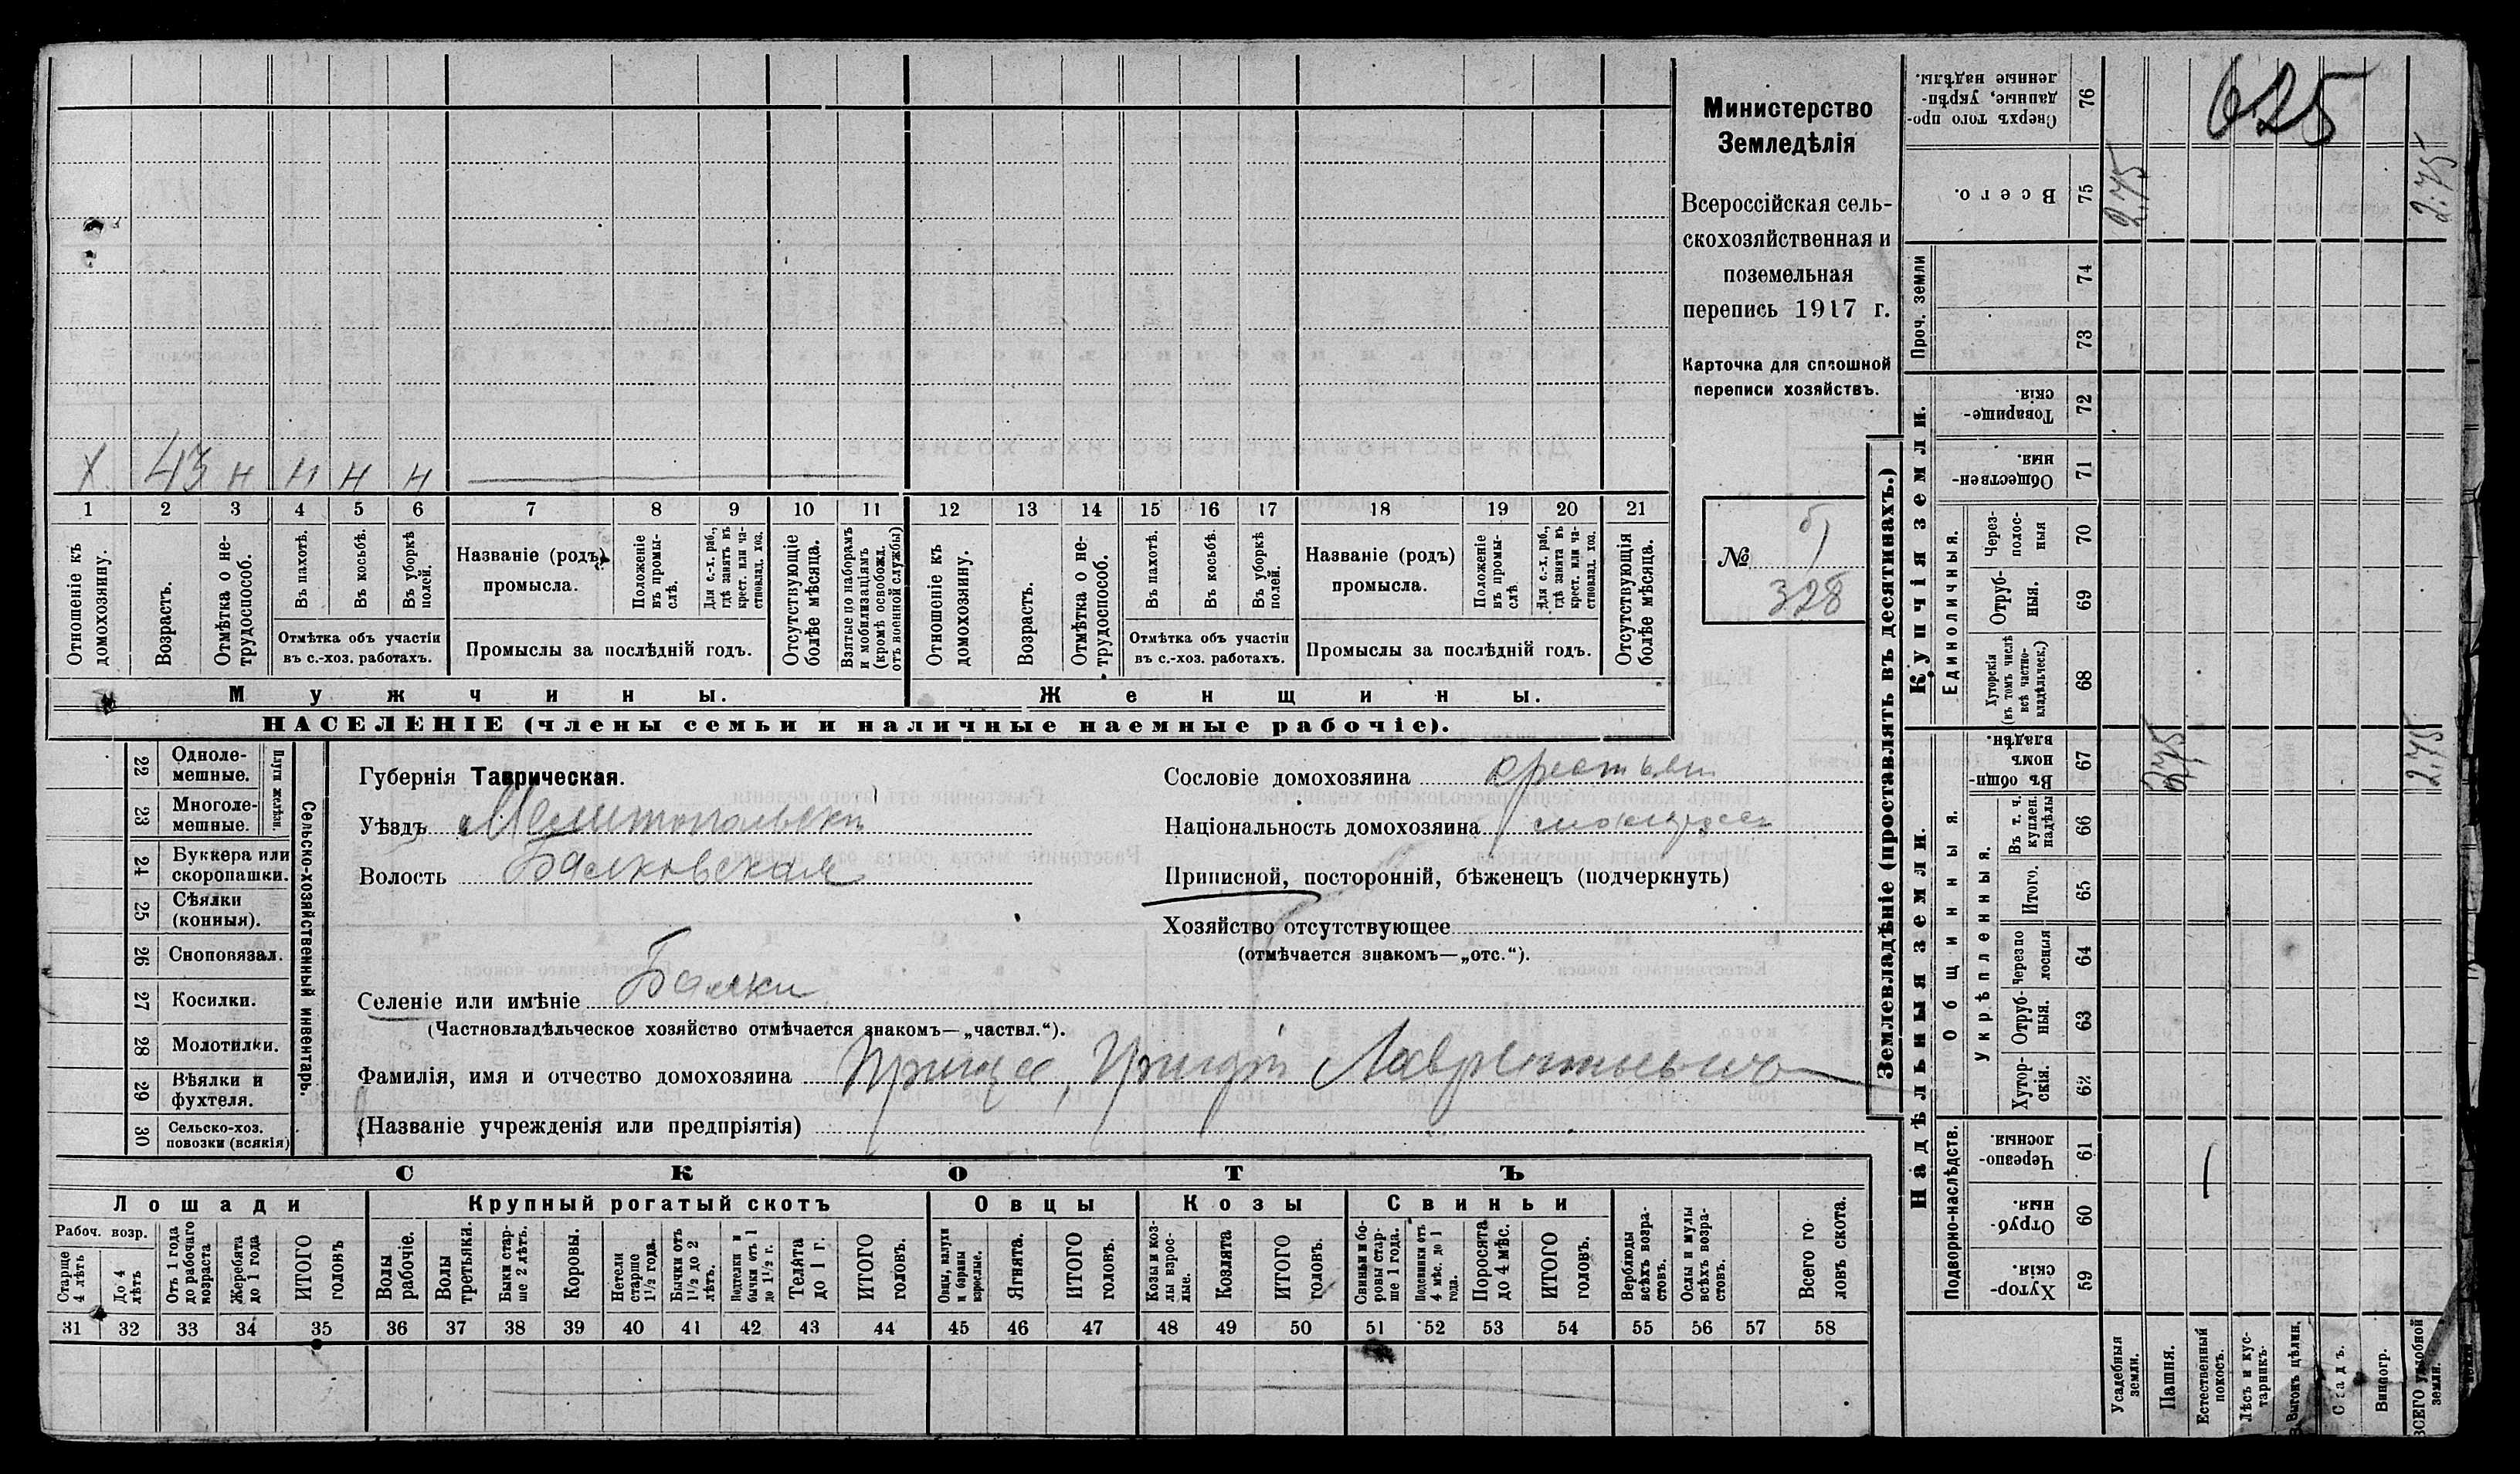 Министерство
Земледѣлія
Всероссійская сель-
скохозяйственная и
поземельная
перепись 1917 г.
Карточка для сплошной
переписи хозяйствъ.
№ б)
328
Х 43 н н н н
1 2 3 4 5 6 7 8 9 10 11 12 13 14 15 16 17 18 19 20 21
Отношеніе къ домохозяину.
Возрастъ.
Отмѣтка о не-трудоспособ.
Въ пахотѣ.
Въ косьбѣ.
Въ уборкѣ полей.
Отмѣтка объ участіи въ с.-хоз. работахъ.
Названіе (родъ) промысла.
Положеніе въ промы-слѣ.
Для с.-х. раб., гдѣ занятъ въ крест. или ча-стновлад. хоз.
Промыслы за послѣдній годъ.
Отсутствующіе болѣе мѣсяца.
Взятые по наборамъ и мобилизаціямъ (кромѣ освобожд. отъ военной службы)
Отношеніе къ домохозяину.
Возрастъ.
Отмѣтка о не-трудоспособ.
Въ пахотѣ.
Въ косьбѣ.
Въ уборкѣ полей.
Отмѣтка объ участіи въ с.-хоз. работахъ.
Названіе (родъ) промысла.
Положеніе въ промы-слѣ.
Для с.-х. раб., гдѣ занятъ въ крест. или ча-стновлад. хоз.
Промыслы за послѣдній годъ.
Отсутствующія болѣе мѣсяца.
Мужчины. Женщины.
НАСЕЛЕНІЕ (члены семьи и наличные наемные рабочіе).
Сельско-хозяйственный инвентарь.
Плуги желѣзн.
22 Одноле-мешные.
23 Многоле-мешные.
24 Буккера или скоропашки.
25 Сѣялки (конныя).
26 Сноповязал.
27 Косилки.
28 Молотилки.
29 Вѣялки и фухтеля.
30 Сельско-хоз. повозки (всякія)
Губернія Таврическая.
Уѣздъ Мелитопольскій
Волость Балковская
Селеніе или имѣніе Балки
(Частновладѣльческое хозяйство отмѣчается знакомъ—„частвл.“).
Сословіе домохозяина крестьян
Національность домохозяина
Приписной, посторонній, бѣженецъ (подчеркнуть)
Хозяйство отсутствующее
(отмѣчается знакомъ—„отс.“).
Фамилія, имя и отчество домохозяина Грицъ, Григорій Лаврентьевъ
(Названіе учрежденія или предпріятія)
СКОТЪ
Лошади Крупный рогатый скотъ Овцы Козы Свиньи
Рабоч. возр.
Старше 4 лѣтъ
До 4 лѣтъ
Отъ 1 года до рабочаго возраста
Жеребята до 1 года
ИТОГО головъ
Волы рабочіе.
Волы третьяки.
Быки стар-ше 2 лѣтъ.
Коровы.
Нетели старше 1½ года.
Бычки отъ 1½ до 2 лѣтъ.
Подтелки и бычки отъ 1 до 1½ г.
Телята до 1 г.
ИТОГО головъ.
Овцы, валухи и бараны взрослые.
Ягнята.
ИТОГО головъ.
Козы и коз-лы взрос-лые.
Козлята
ИТОГО головъ.
Свиньи и бо-ровы стар-ше 1 года.
Подсвинки отъ 4 мѣс. до 1 года.
Поросята до 4 мѣс.
ИТОГО головъ.
Верблюды всѣхъ возра-стовъ.
Ослы и мулы всѣхъ возра-стовъ.
Всего го-ловъ скота.
31 32 33 34 35 36 37 38 39 40 41 42 43 44 45 46 47 48 49 50 51 52 53 54 55 56 57 58
Землевладѣніе (проставлять въ десятинахъ.)
625
76 Сверхъ того про-данные, укрѣп-ленные надѣлы.
75 Всего. 2.75 2.75
Проч. земли
74
73
Купчія земли.
72 Товарище-скія.
71 Обществен-ныя.
Единоличныя.
70 Через-полос-ныя
69 Отруб-ныя.
68 Хуторскія (въ томъ числѣ всѣ частно-владѣльческ.)
Надѣльныя земли.
Общинныя.
67 Въ общи-номъ владѣн. 2.75 2.75
Укрѣпленныя.
66 Въ т. ч. куплен. надѣлы
65 Итого.
64 Черезпо лосныя
63 Отруб-ныя.
62 Хутор-скія.
Подворно-наслѣдств.
61 Черезпо-лосныя.
60 Отруб-ныя.
59 Хутор-скія.
Усадебныя земли.
Пашня.
Естественный покосъ.
Лѣсъ и кус-тарникъ.
Выгонъ цѣлин.
Садъ.
Виногр.
ВСЕГО удобной земли.